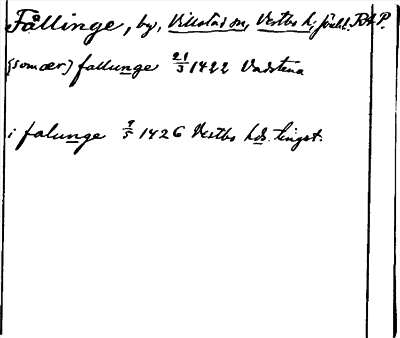 Fållinge, by, Villstad sn, Vestbo h, Jönk l. RAP.
(som ær) fallunge 21/3 1422 Vadstena
i falunge 7/5 1426 Vestbo hds. tingst.